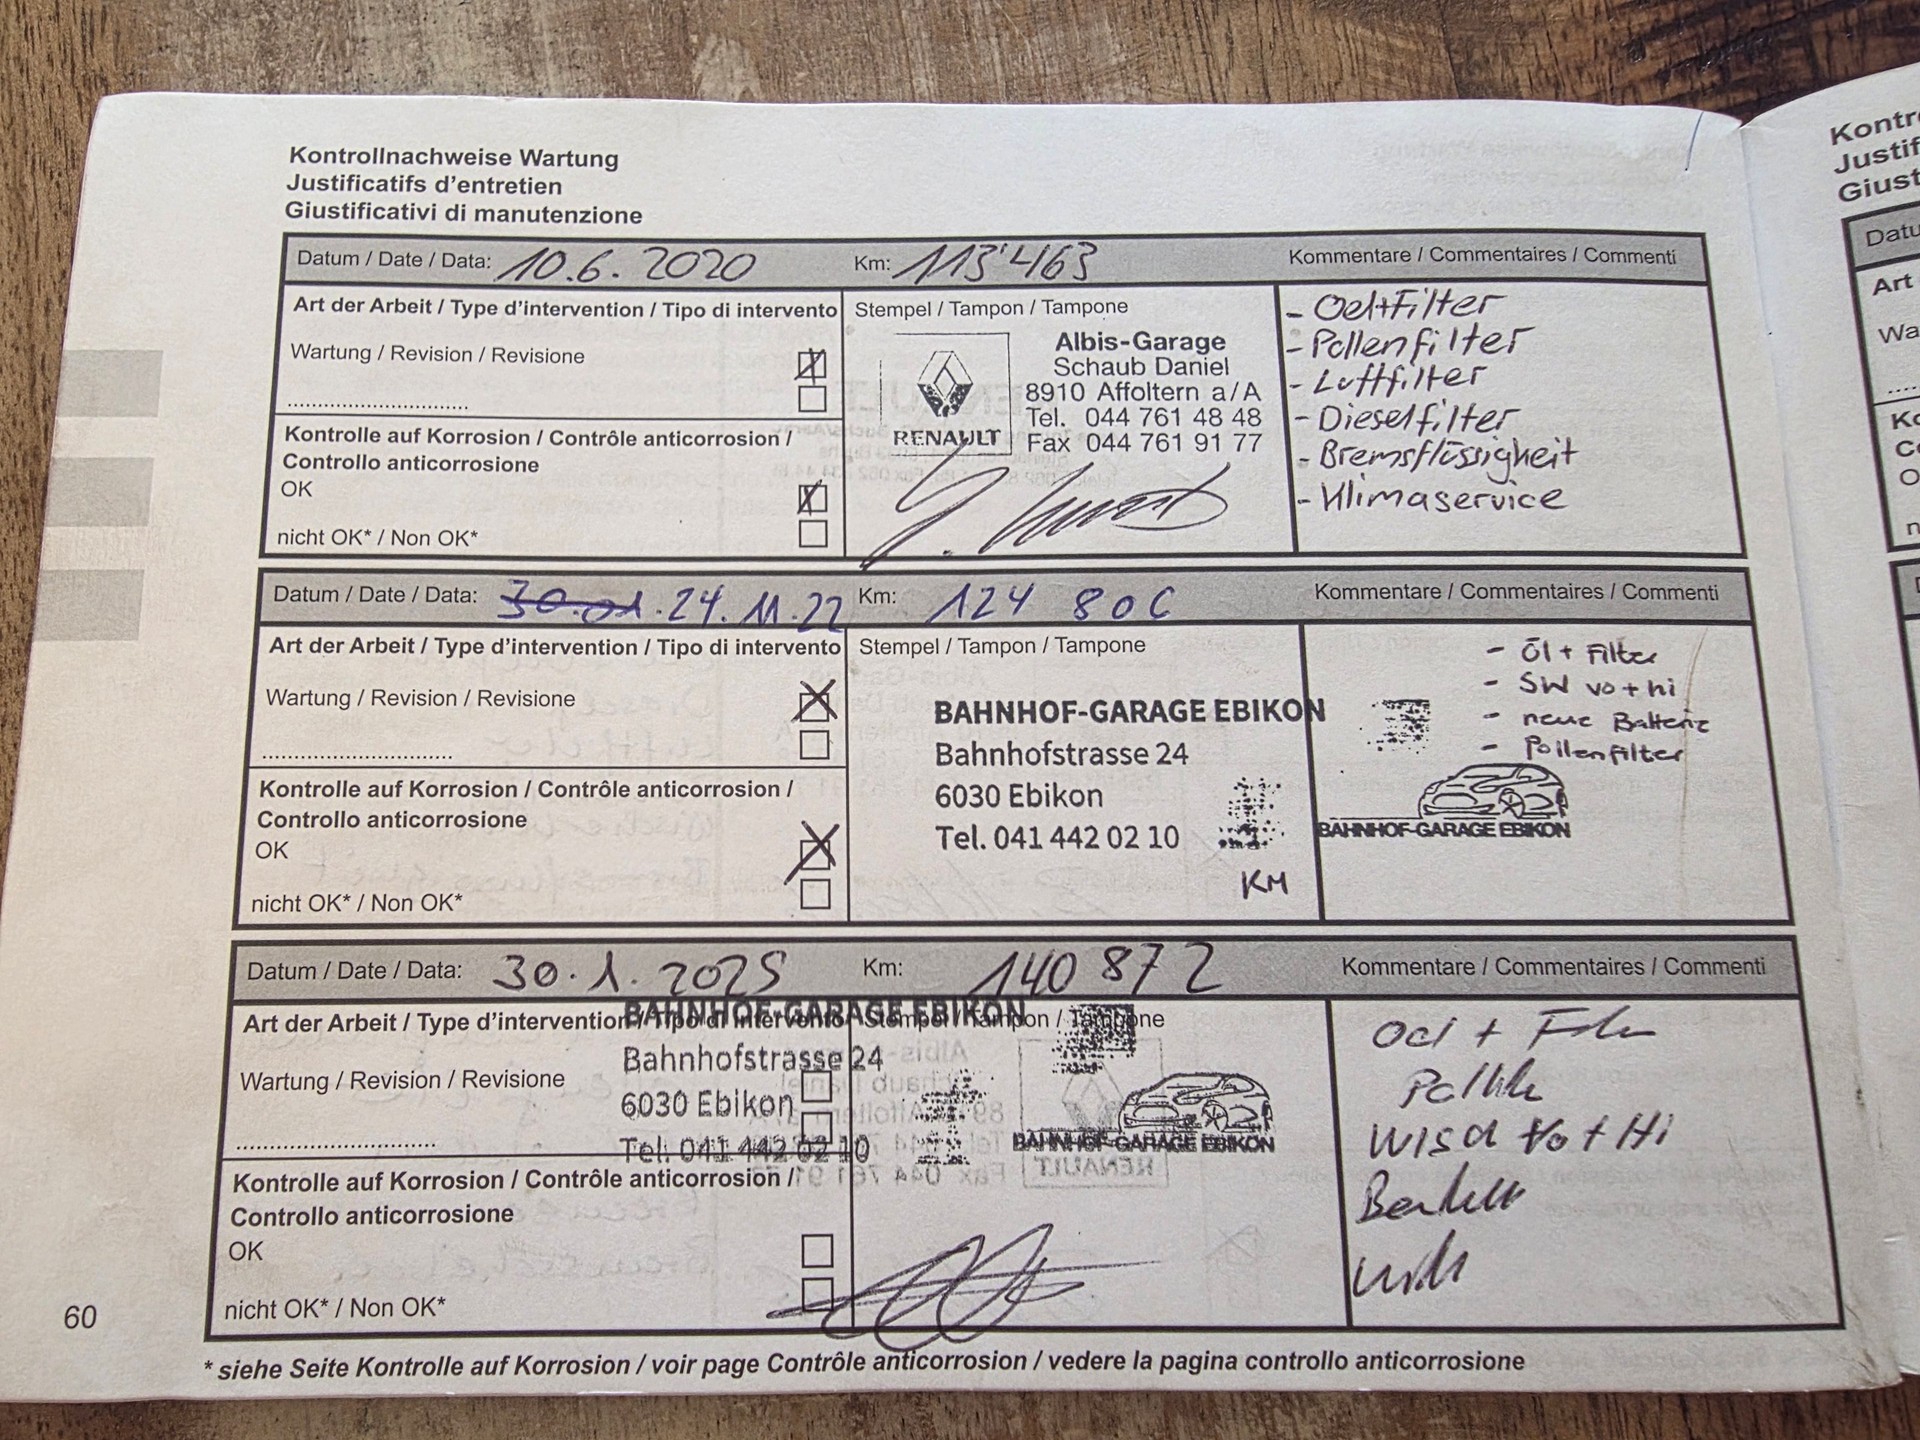 Kontrollnachweise Wartung
Justificatifs d'entretien
Giustificativi di manutenzione
Datum / Date / Data: 10.6.2020 Km: 113'463 Kommentare / Commentaires / Commenti
Art der Arbeit / Type d'intervention / Tipo di intervento
Wartung / Revision / Revisione
Kontrolle auf Korrosion / Contrôle anticorrosion /
Controllo anticorrosione
OK
nicht OK* / Non OK*
Stempel / Tampon / Tampone
RENAULT
Albis-Garage
Schaub Daniel
8910 Affoltern a/A
Tel. 044 761 48 48
Fax 044 761 91 77
- Oel+Filter
- Pollenfilter
- Luftfilter
- Dieselfilter
- Bremsflüssigkeit
- Klimaservice
Datum / Date / Data: 30.01. 24.11.22 Km: 124 806 Kommentare / Commentaires / Commenti
Art der Arbeit / Type d'intervention / Tipo di intervento
Wartung / Revision / Revisione
Kontrolle auf Korrosion / Contrôle anticorrosion /
Controllo anticorrosione
OK
nicht OK* / Non OK*
Stempel / Tampon / Tampone
BAHNHOF-GARAGE EBIKON
Bahnhofstrasse 24
6030 Ebikon
Tel. 041 442 02 10
KM
- Öl + Filter
- SW vo + hi
- neue Batterie
- Pollenfilter
BAHNHOF-GARAGE EBIKON
Datum / Date / Data: 30.1.2025 Km: 140 872 Kommentare / Commentaires / Commenti
Art der Arbeit / Type d'intervention / Tipo di intervento
Wartung / Revision / Revisione
Kontrolle auf Korrosion / Contrôle anticorrosion /
Controllo anticorrosione
OK
nicht OK* / Non OK*
Stempel / Tampon / Tampone
BAHNHOF-GARAGE EBIKON
Bahnhofstrasse 24
6030 Ebikon
Tel. 041 442 02 10
BAHNHOF-GARAGE EBIKON
Oel +
Vo + Hi
60
* siehe Seite Kontrolle auf Korrosion / voir page Contrôle anticorrosion / vedere la pagina controllo anticorrosione